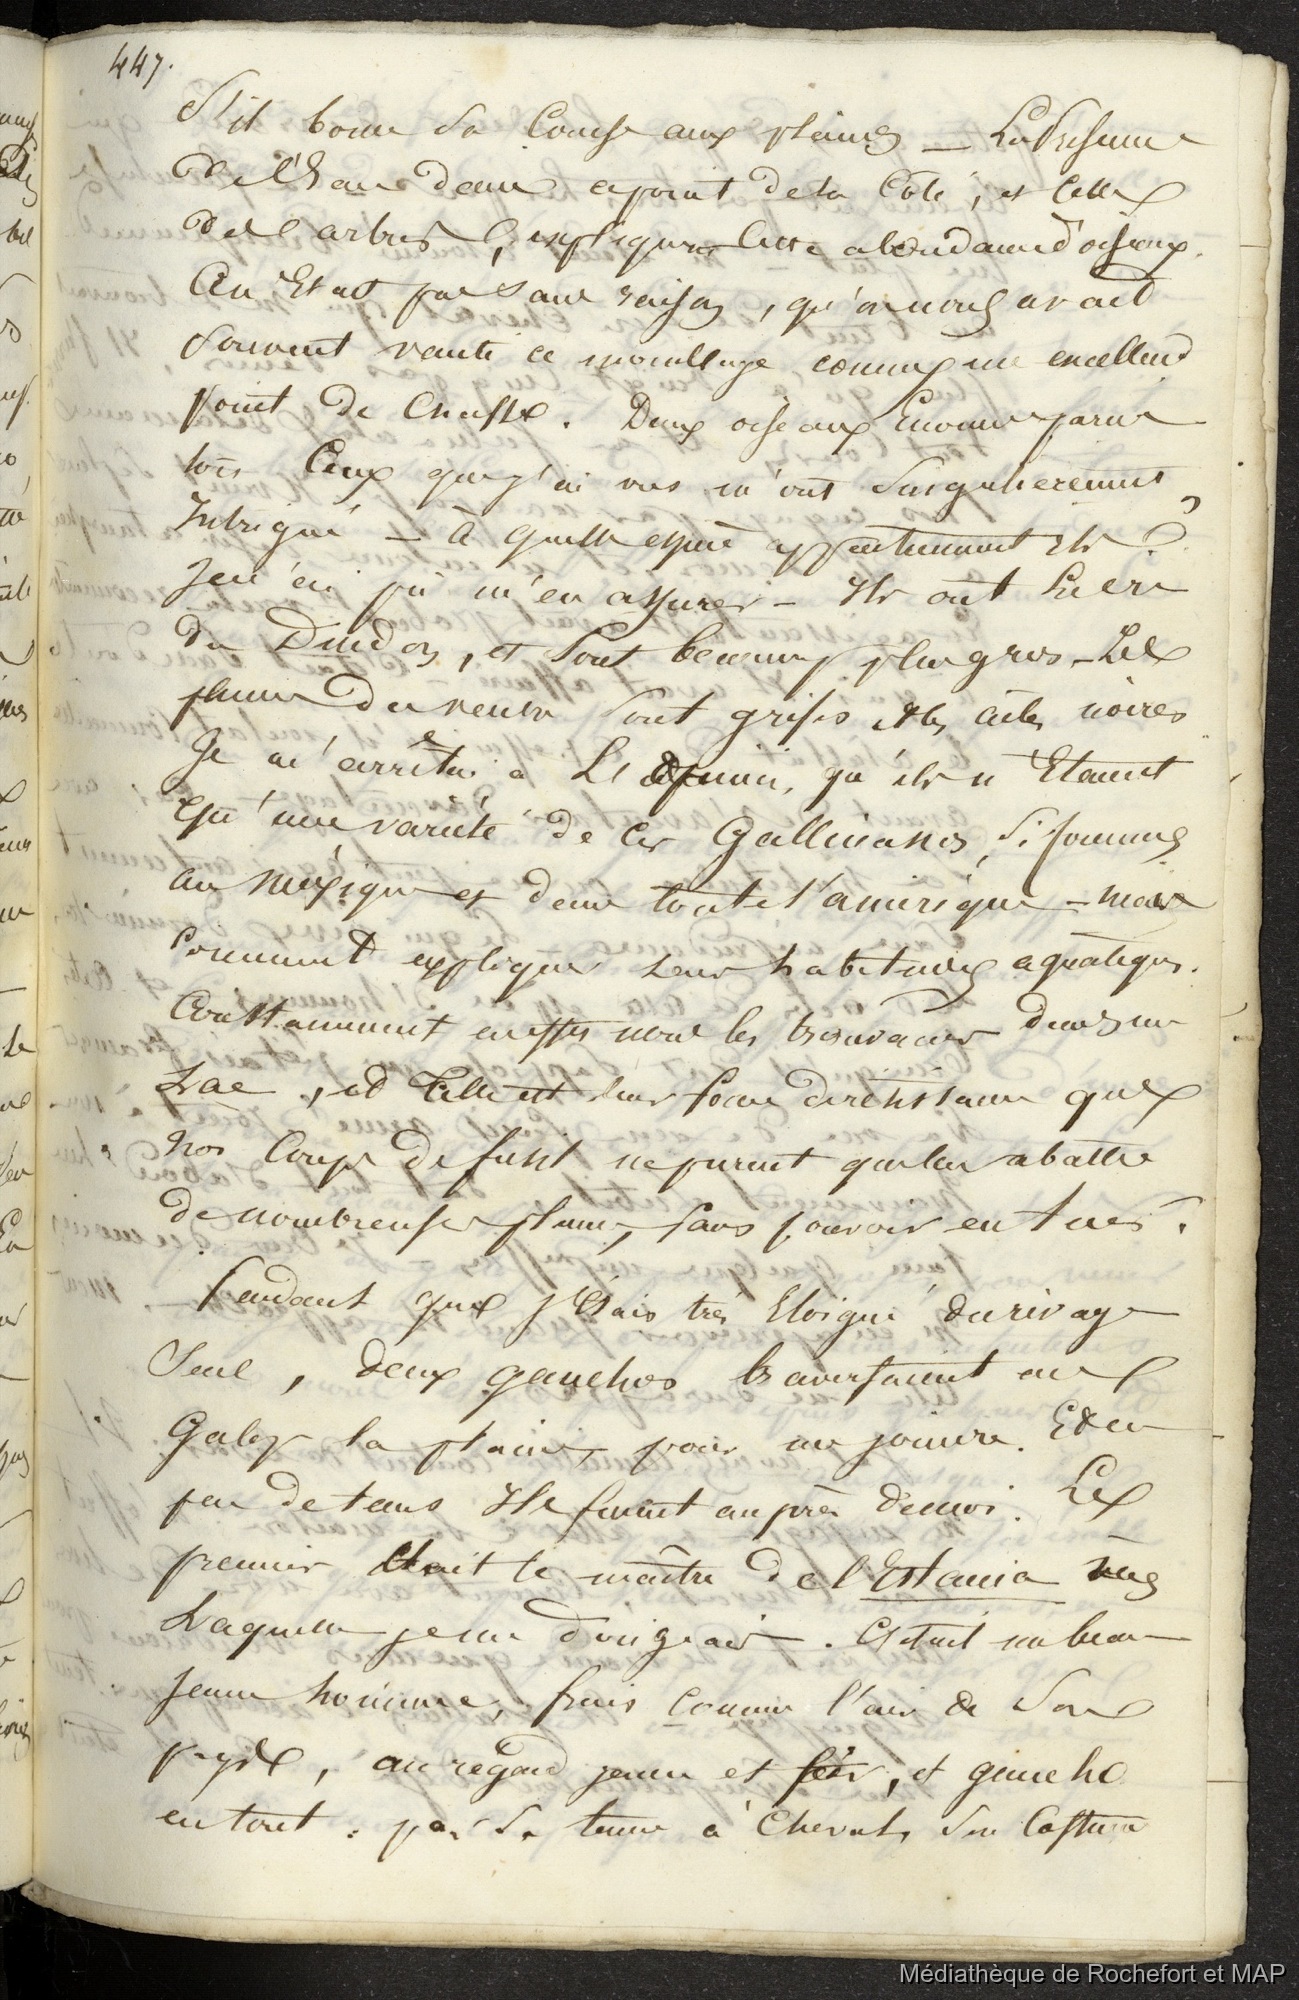 447.
S'il borne sa Course aux plaines _ La Présence
de l'Eau dans ce point de la Côte, et Celle
des arbres, expliquent Cette abondance d'oiseaux.
Ce n'Etait pas sans raison, qu'on nous avait
Souvent vanté ce mouillage comme un excellent
point de Chasse. Deux oiseaux Encore parmi
tous Ceux que j'ai vus m'ont Singulierement
Intrigué _ à quelle espèce appartiennent Ils ?
Je n'ai pû m'en assurer _ Ils ont
du Dindon, et Sont beaucoup plus gros _ Les
plumes du ventre Sont grises et les ailes noires
Je m'arrêtai à L'opinion, qu'ils n'Etaient
qu'une variété de Ces Gallinanos, Si Communs
au Méxique et dans toute l'amérique _ mais
Comment expliquer leurs habitudes aquatiques.
Constamment en effet nous les trouvames dans un
Lac, et telle est leur force de résistance que
nos Coups de fusil ne purent que leur abattre
de nombreuses plumes, Sans pouvoir en tuer.
Pendant que j'Etais très Eloigné du rivage
Seul, deux gauchos traversaient au
Galop la plaine, pour me joindre. Et en
peu de tems Ils furent auprès de moi. Le
premier Etait le maître de l'Estancia vers
Laquelle je me dirigeais. C'etait un beau
jeune homme, frais comme l'air de Son
pays, au regard jeune et fier, et gaucho
en tout : par Sa tenue à Cheval, Son Costume
Médiathèque de Rochefort et MAP